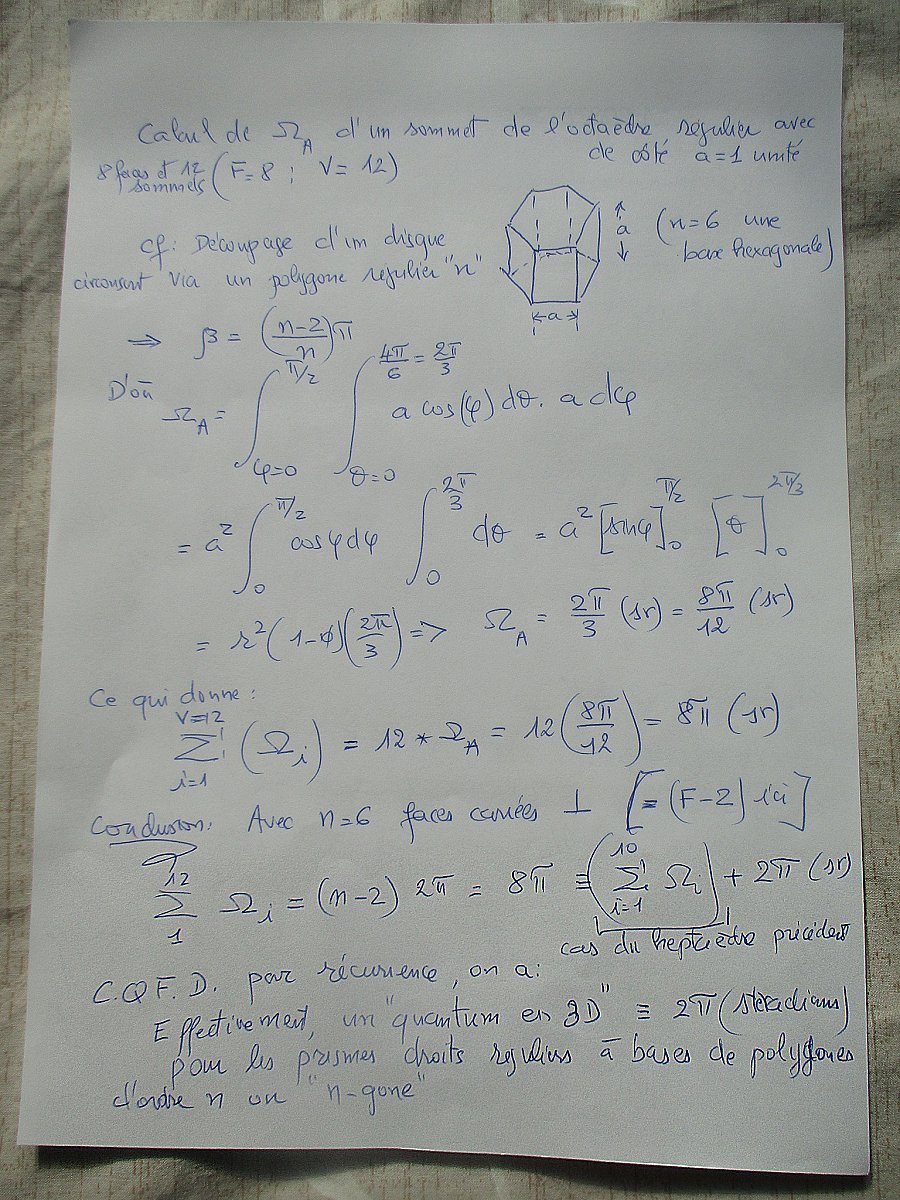 Calcul de Ω_A d'un sommet de l'octaèdre régulier avec
de côté a=1 unité
8 faces et 12 sommets (F=8 ; V=12)
a
(n=6 une
base hexagonale)
cf: Découpage d'un disque
circonscrit via un polygone régulier "n"
a
⇒ β = ((n-2)/n)π
D'où
Ω_A = ∫_{φ=0}^{π/2} ∫_{θ=0}^{4π/6 = 2π/3} a cos(φ) dθ. a dφ
= a² ∫_0^{π/2} cosφ dφ ∫_0^{2π/3} dθ = a² [sinφ]_0^{π/2} [θ]_0^{2π/3}
= r² (1-0)(2π/3) => Ω_A = 2π/3 (sr) = 8π/12 (sr)
Ce qui donne:
∑_{i=1}^{V=12} (Ω_i) = 12 * Ω_A = 12 (8π/12) = 8π (sr)
Conclusion: Avec n=6 faces carrées ⊥ [= (F-2) ici]
∑_1^{12} Ω_i = (n-2) 2π = 8π ≡ (∑_{i=1}^{10} Ω_i) + 2π (sr)
cas du heptaèdre précédent
C.Q.F.D. par récurrence, on a:
Effectivement, un "quantum en 3D" ≡ 2π (stéradians)
pour les prismes droits réguliers à bases de polygones
d'ordre n ou "n-gone"